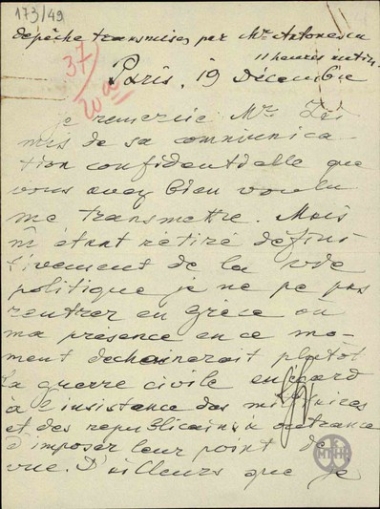 173/49
dépêche transmise, par Mr Antonescu
11 heures matin
37
20a
Paris, 19 Décembre
je remercie Mr Zaï
mis de sa communica
tion confidentielle que
vous avez bien voulu
me transmettre. Mais
m'étant rétiré défini
tivement de la vie
politique je ne pe pas
rentrer en Grèce où
ma présence en ce mo-
ment dechainerait plutot
la guerre civile en égard
à l'insistance des militaires
et des republicains à outrance
d'imposer leur point de
vue. D'ailleurs que je